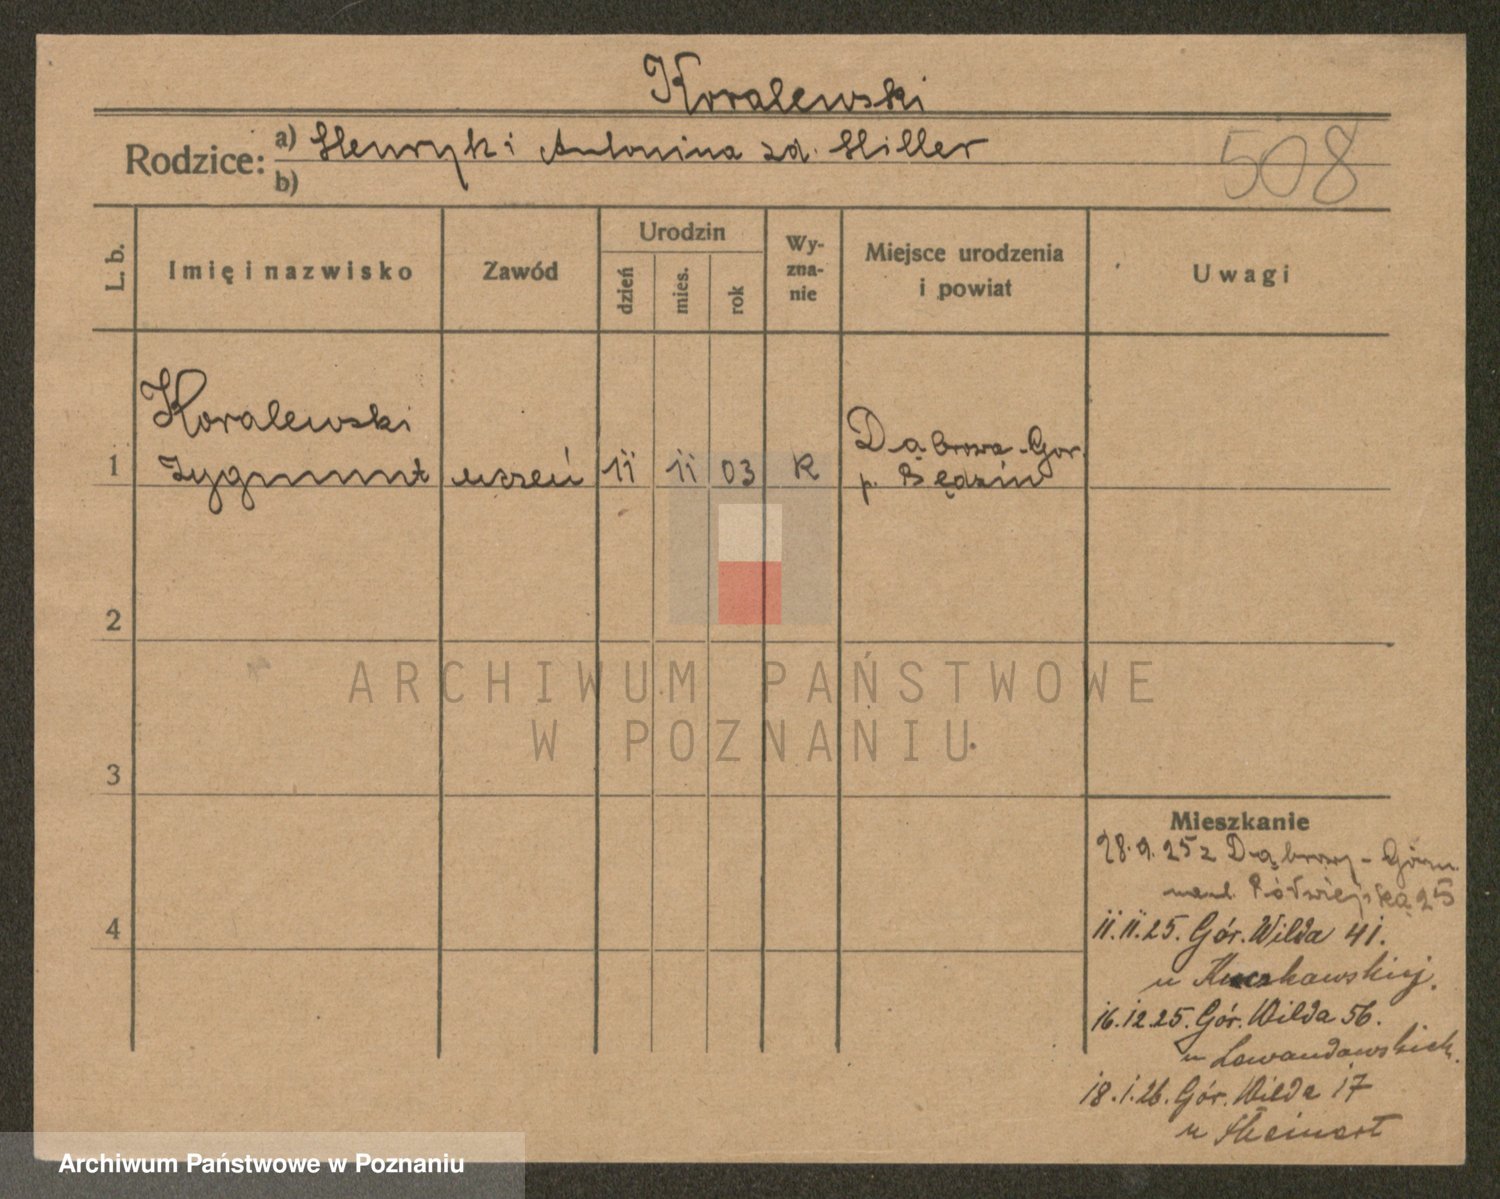 Koralewski
Rodzice: a) Henryk i Antonina zd. Hiller
b)
508
L. b.
Imię i nazwisko
Zawód
Urodzin
dzień
mies.
rok
Wy-
zna-
nie
Miejsce urodzenia
i powiat
Uwagi
Koralewski
1 Zygmunt uczeń 11 11 03 R
Dąbrowa-Gór.
p. Będzin
2
3
4
ARCHIWUM PAŃSTWOWE
W POZNANIU
Mieszkanie
28.9.25 z Dąbrowy-Górn.
Półwiejska 25
11.11.25. Gór. Wilda 41.
u
16.12.25. Gór. Wilda 56.
u Lewandowskich.
18.1.26. Gór. Wilda 17
u
Archiwum Państwowe w Poznaniu